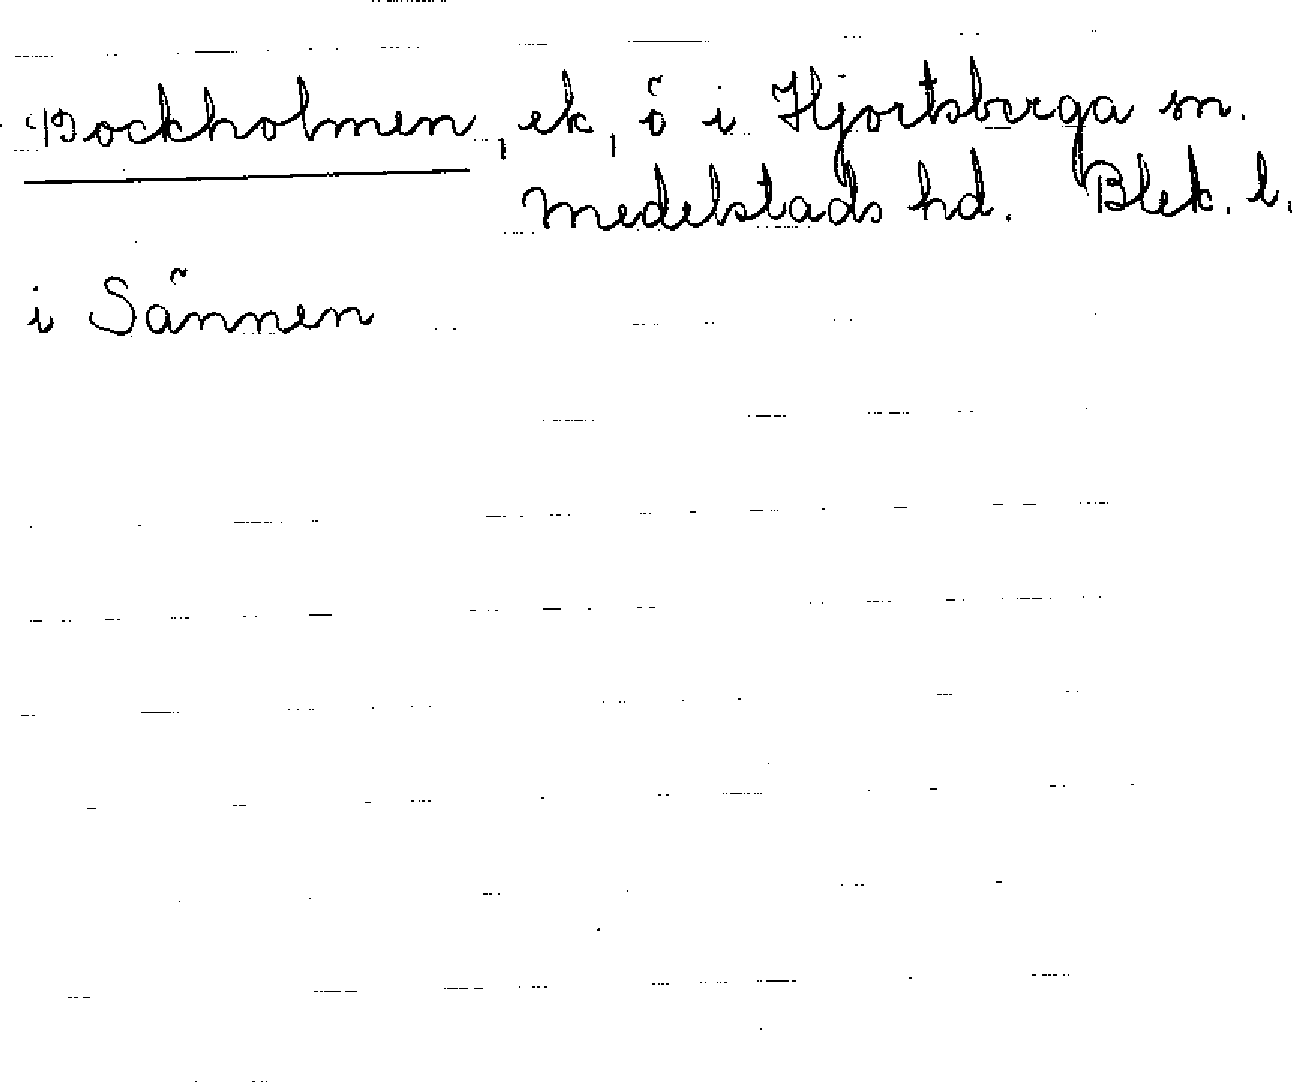 Bockholmen, ek, ö i Hjortsberga sn.
Medelstads hd. Blek. l.
i Sännen